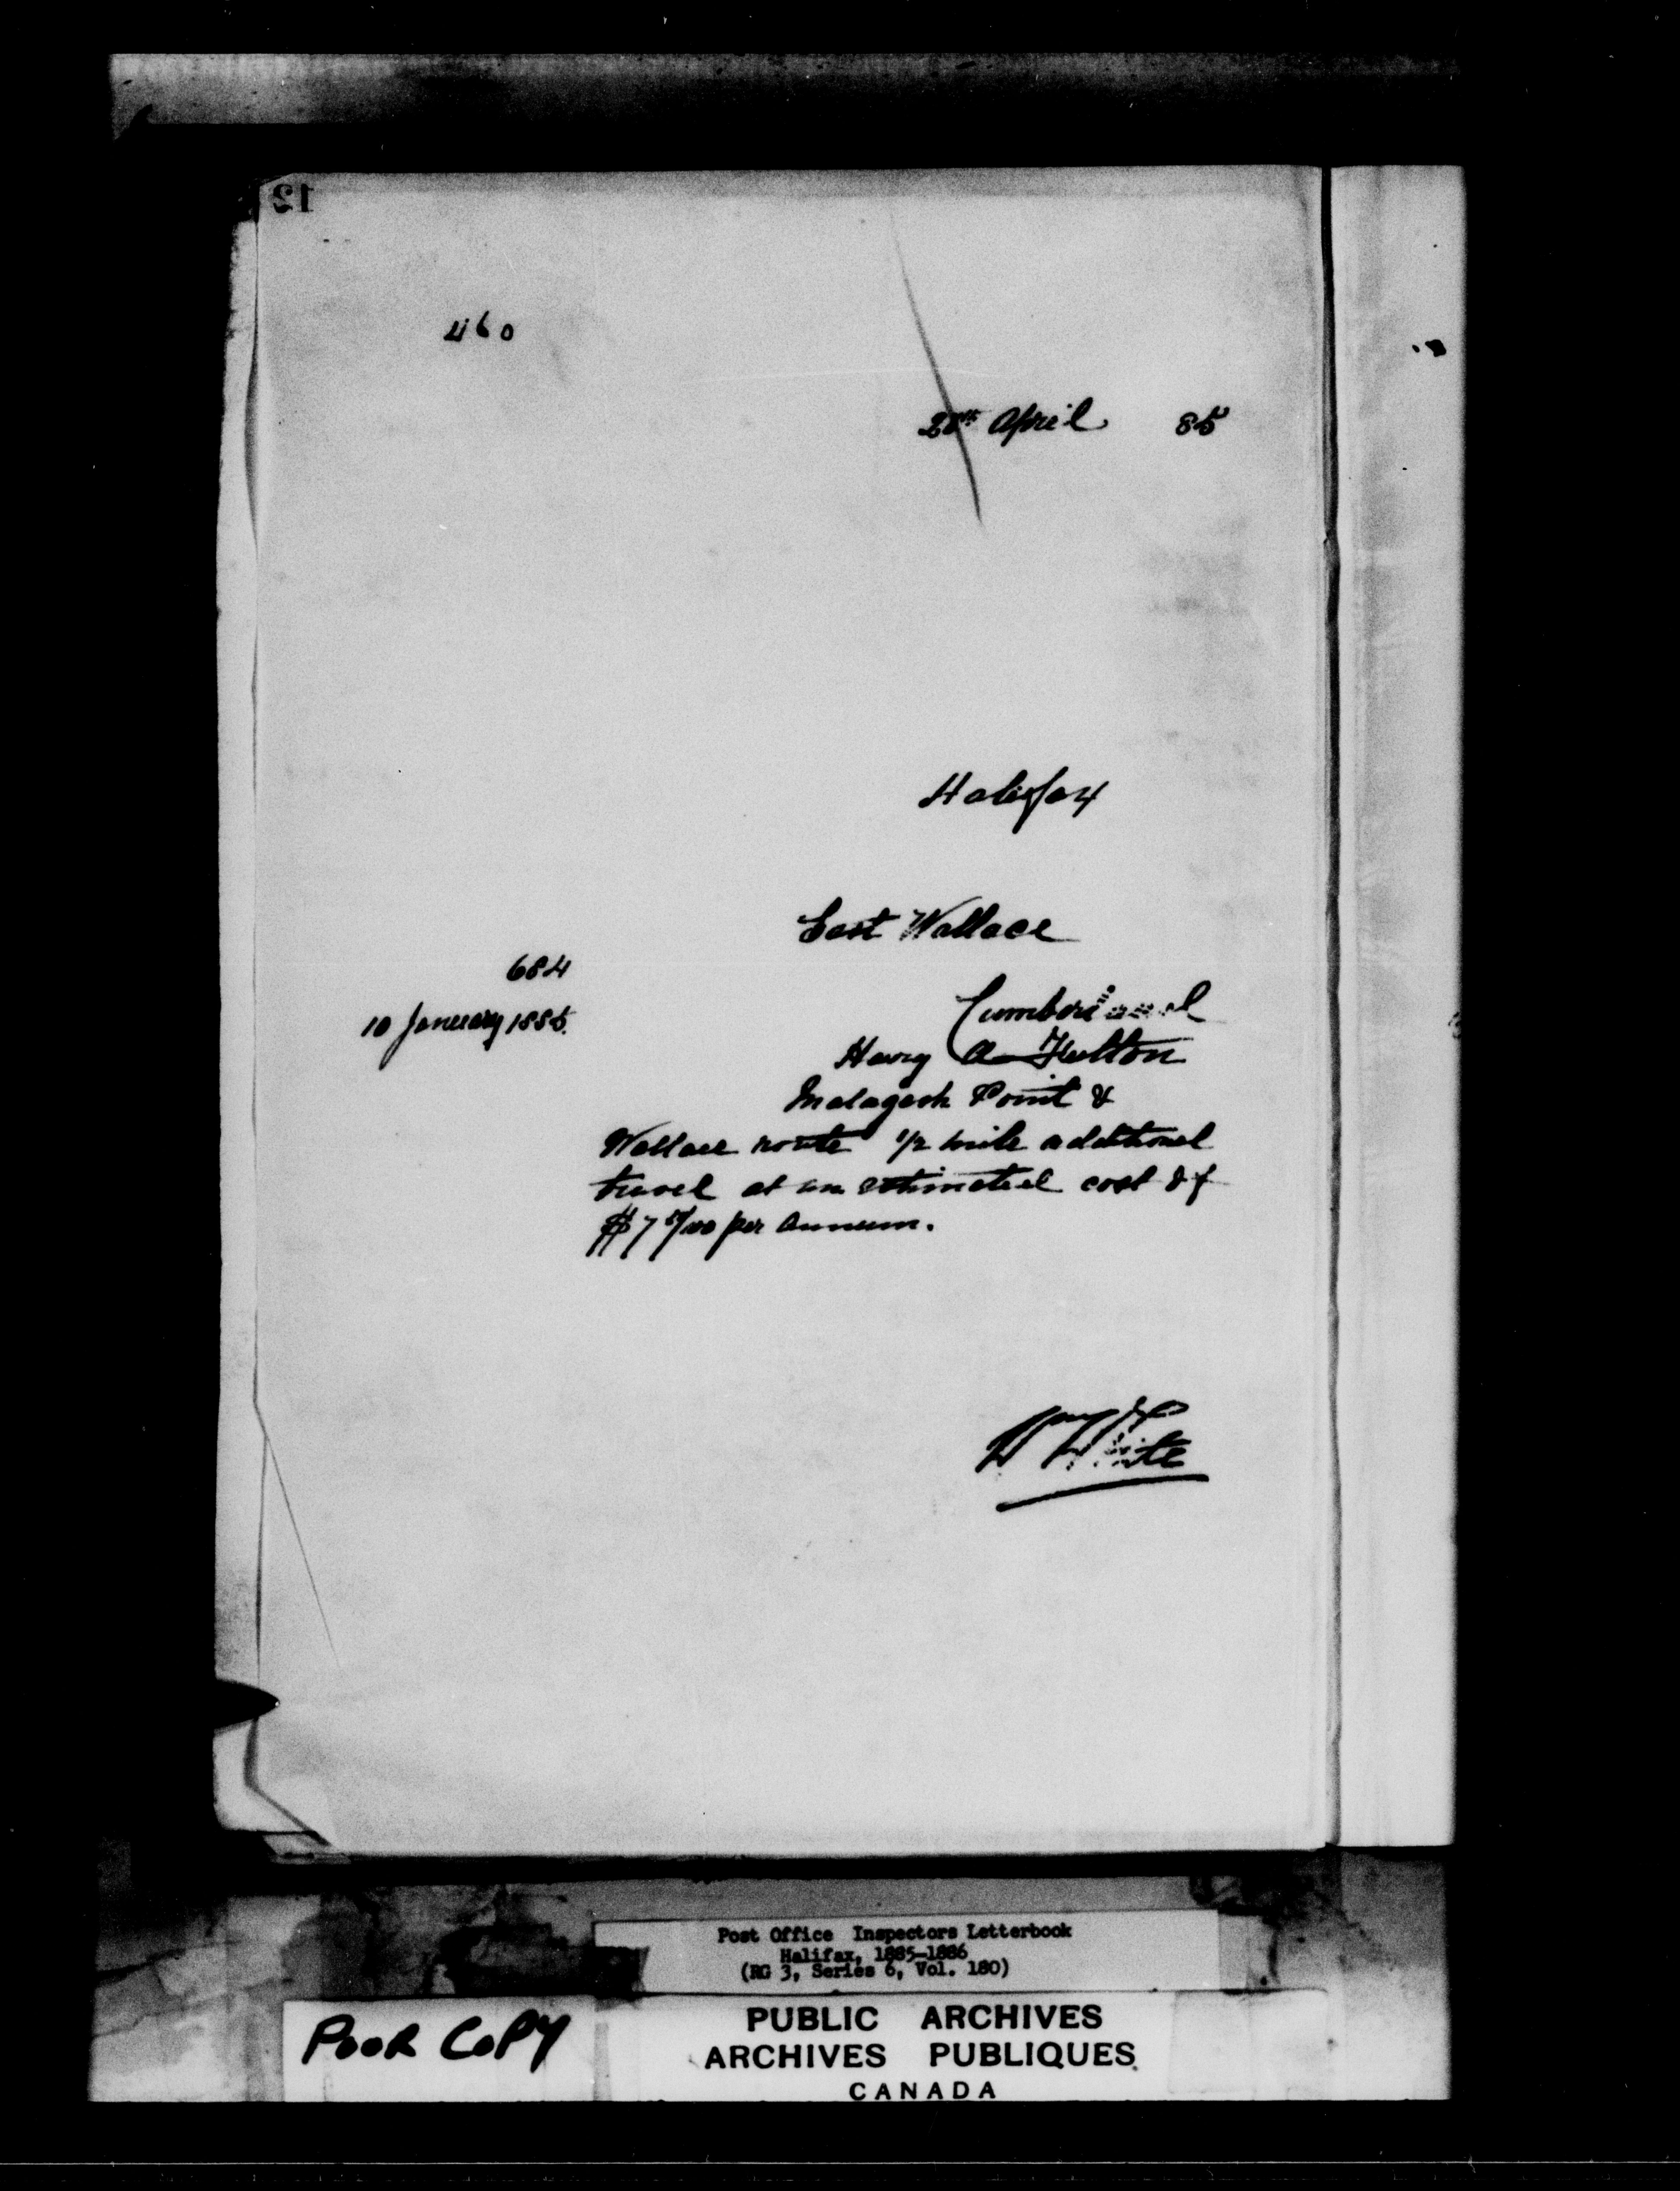 12
460
28th April 85
Halifax
East Wallace
684
10 January 1885.
Cumberland
Harry A Fulton
Malagash Point &
Wallace route 1/2 mile additional
travel at an estimated cost of
$7 50/100 per annum.
White
Post Office Inspectors Letterbook
Halifax, 1885-1886
(RG 3, Series 6, Vol. 180)
POOR COPY
PUBLIC ARCHIVES
ARCHIVES PUBLIQUES
CANADA